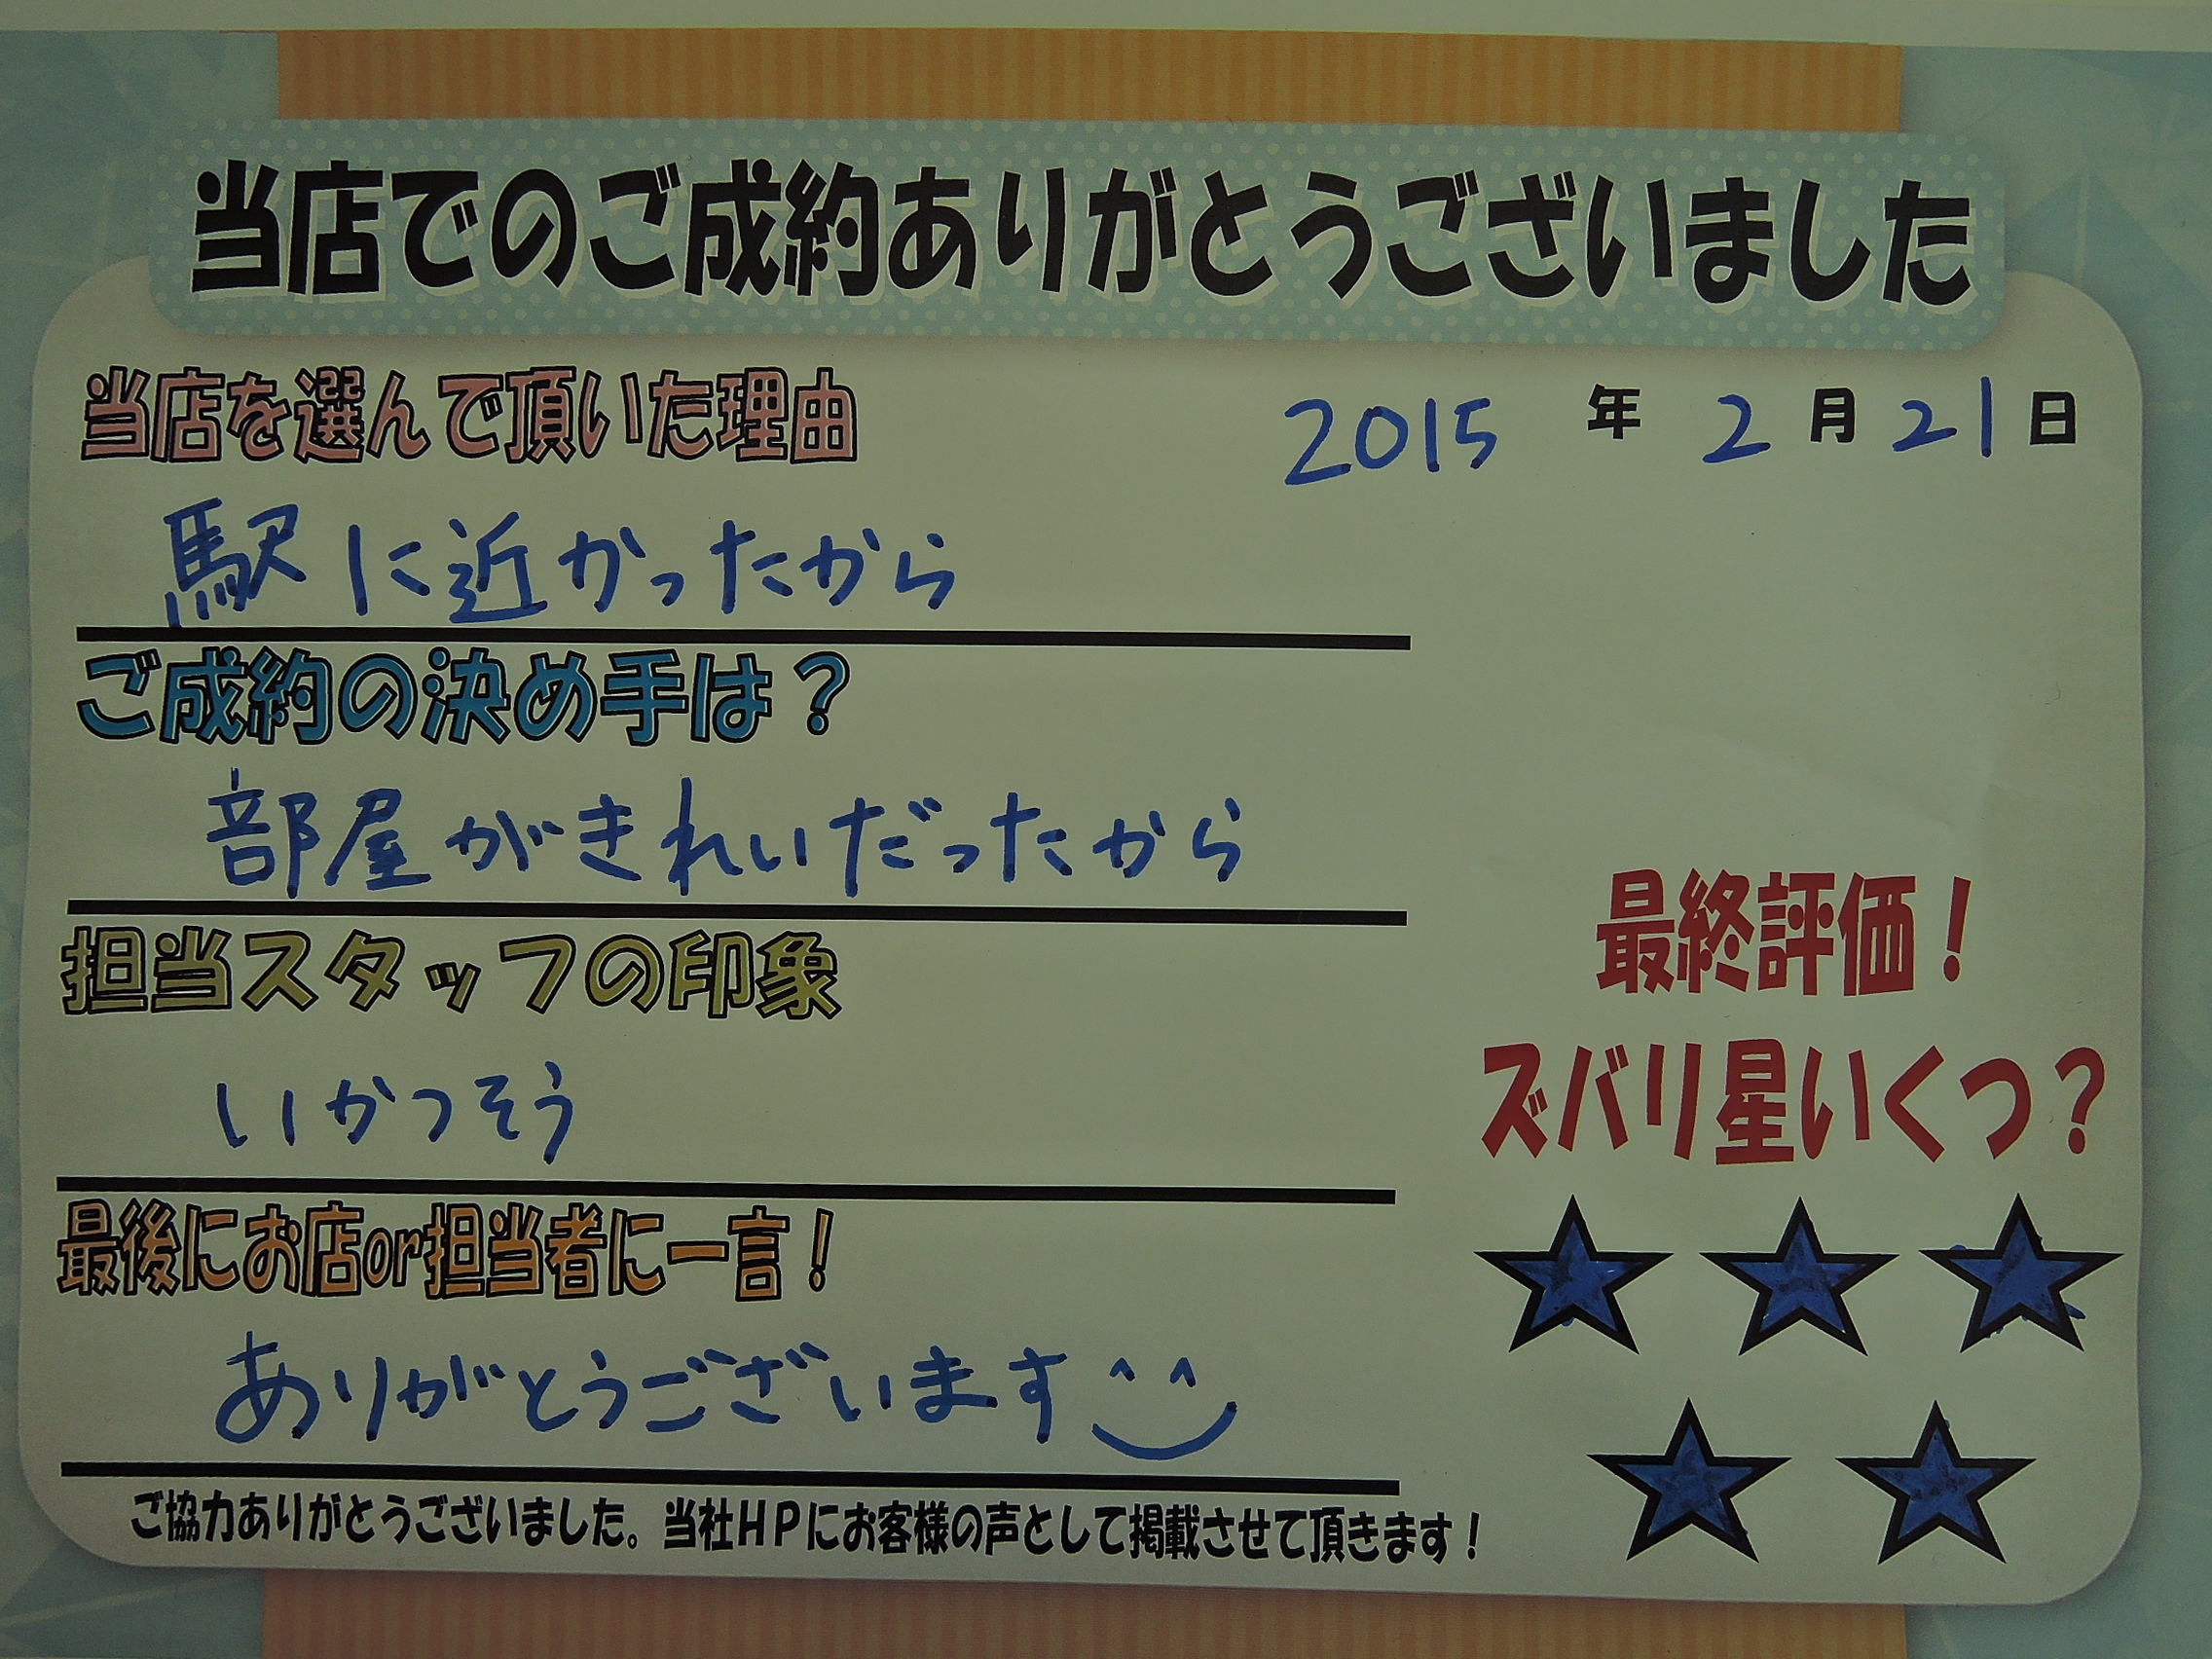 当店でのご成約ありがとうございました
当店を選んで頂いた理由
2015 年 2 月 21 日
駅に近かったから
ご成約の決め手は?
部屋がきれいだったから
担当スタッフの印象
いかつそう
最終評価!
ズバリ星いくつ?
最後にお店or担当者に一言!
ありがとうございます
ご協力ありがとうございました。当社HPにお客様の声として掲載させて頂きます!